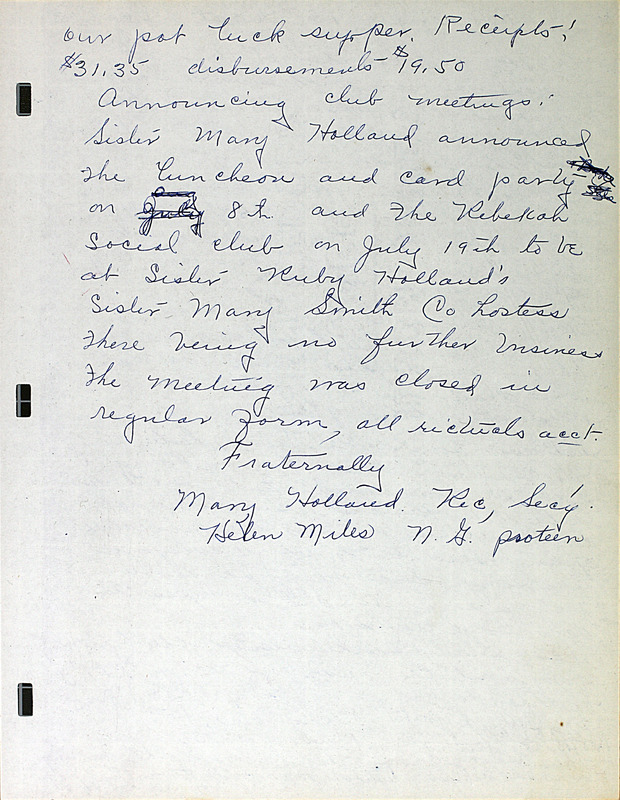 our pot luck supper. Receipts!
$31.35 disbursements $19.50
Announcing club meetings.
Sister Mary Holland announced
the luncheon and card party
on July 8th and the Rebekah
Social club on July 19th to be
at Sister Ruby Holland's
Sister Mary Smith Co hostess
There being no further business
the meeting was closed in
regular form, all rictuals acct.
Fraternally
Mary Holland. Rec, Secy.
Helen Miles N.G. protem